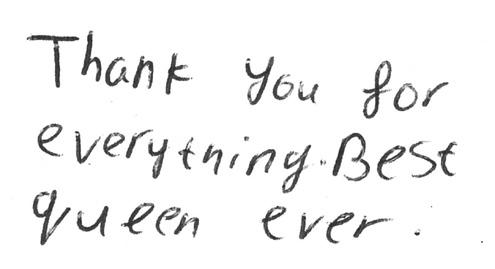 Thank you for
everything. Best
queen ever.